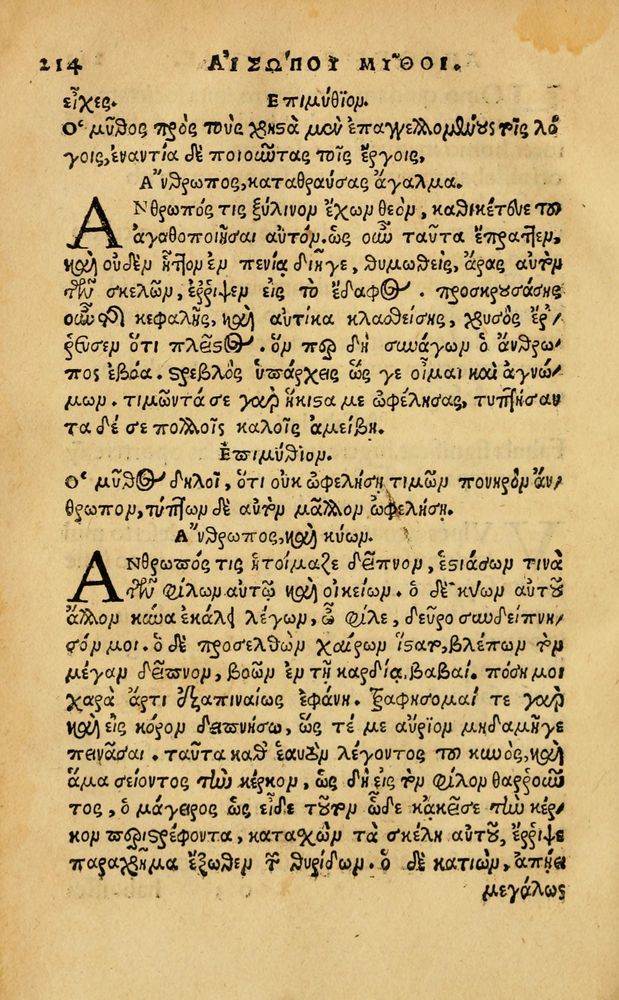 214 ΑΙΣΩΠΟΥ ΜΥΘΟΙ.
εἶχες. Επιμύθιον.
Ο μῦθος πρὸς τοὺς χρηστὰ μὲν ἐπαγγελλομένους τοῖς λό
γοις, ἐναντία δὲ ποιοῦντας τοῖς ἔργοις.
Ἄνθρωπος, καταθραύσας ἄγαλμα.
ΑΝθρωπός τις ξύλινον ἔχων θεὸν, καθικέτευε τοῦ
ἀγαθοποιῆσαι αὐτόν. ὡς οὖν ταῦτα ἔπραττεν,
καὶ οὐδὲν ἧττον ἐν πενίᾳ διῆγε, θυμωθεὶς, ἄρας αὐτὸν
τῶν σκελῶν, ἔρριψεν εἰς τὸ ἔδαφος. προσκρουσάσης
οὖν τῆς κεφαλῆς, καὶ αὐτίκα κλασθείσης, χρυσὸς ἔρ/
ρευσεν ὅτι πλεῖστος. ὃν περ δὴ συνάγων ὁ ἄνθρω/
πος ἐβόα. στρεβλὸς ὑπάρχεις ὥς γε οἶμαι καὶ ἀγνώ/
μων. τιμῶντά σε γὰρ ἥκιστα με ὠφέλησας, τυπτήσαν
τα δέ σε πολλοῖς καλοῖς ἀμείβῃ.
Ἐπιμύθιον.
Ο μῦθος δηλοῖ, ὅτι οὐκ ὠφελήσῃ τιμῶν πονηρὸν ἄν/
θρωπον, τύπτων δὲ αὐτὸν μᾶλλον ὠφελήσῃ.
Ἄνθρωπος, καὶ κύων.
ΑΝθρωπός τις ἡτοίμαζε δεῖπνον, ἑστιάσων τινὰ
τῶν φίλων αὐτῷ καὶ οἰκείων. ὁ δὲ κύων αὐτοῦ
ἄλλον κύνα ἐκάλει λέγων, ὦ φίλε, δεῦρο συνδείπνη/
σόν μοι. ὁ δὲ προσελθὼν χαίρων ἵστατο, βλέπων τὸν
μέγαν δεῖπνον, βοῶν ἐν τῇ καρδίᾳ, βαβαί. πόση μοι
χαρὰ ἄρτι ἐξαπιναίως ἐφάνη. τραφήσομαί τε γὰρ
καὶ εἰς κόρον δειπνήσω, ὥς τέ με αὔριον μηδαμῆγε
πεινᾶσαι. ταῦτα καθ' ἑαυτὸν λέγοντος τοῦ κυνὸς, καὶ
ἅμα σείοντος τὴν κέρκον, ὡς δὴ εἰς τὸν φίλον θαρροῦν
τος, ὁ μάγειρος ὡς εἶδε τοῦτον ὧδε κἀκεῖσε τὴν κέρ/
κον περιστρέφοντα, κατασχὼν τὰ σκέλη αὐτοῦ, ἔρριψε
παραχρῆμα ἔξωθεν τῶν θυρίδων. ὁ δὲ κατιὼν, ἀπῄει
μεγάλως